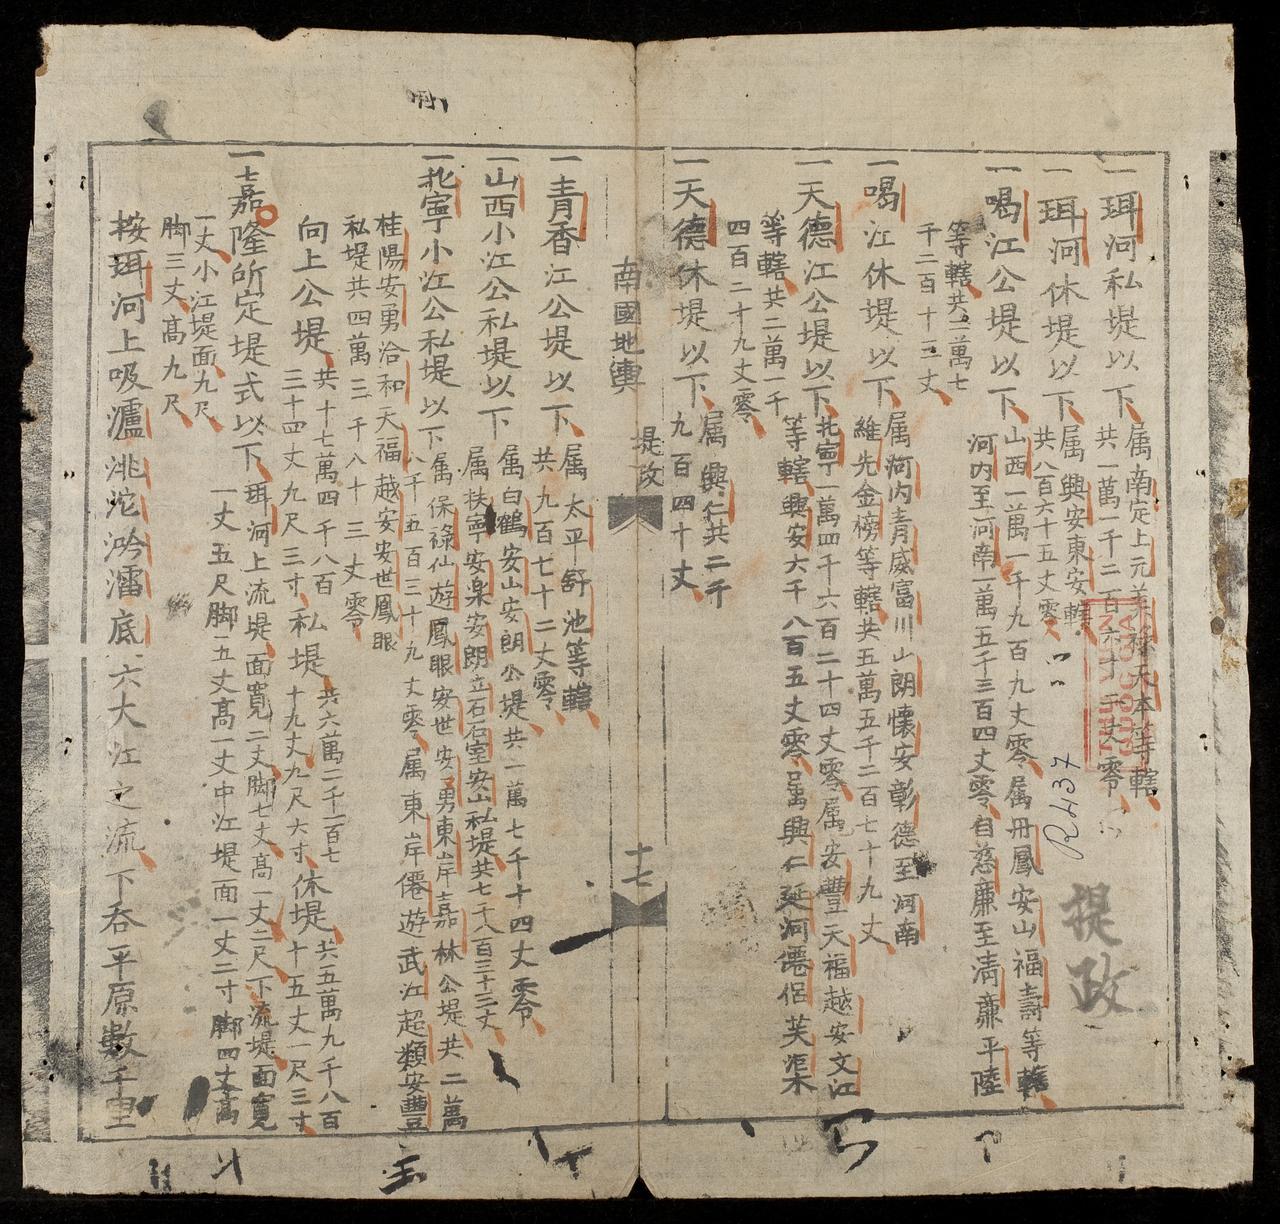 一珥河私堤以下属南定上元美祿天本等轄
共一萬一千二百六十二丈零
一珥河休堤以下属興安東安轄
共八百六十五丈零
一喝江公堤以下山西一萬一千九百九丈零属丹鳳安山福壽等轄
河内至河南一萬五千三百四丈零自慈廉至清廉平陸
等轄共二萬七
千二百十三丈
一喝江休堤以下属河内青威富川山朗懷安彰德至河南
維先金榜等轄共五萬五千二百七十九丈
一天德江公堤以下北寧一萬四千六百二十四丈零属安豐天福越安文江
等轄興安六千八百五丈零属興仁延河僊侶芙蕖
等轄共二萬一千
四百二十九丈零
一天德休堤以下属興仁共二千
九百四十丈
南國地輿
堤政
十七
一青香江公堤以下属太平舒池等轄
共九百七十二丈零
一山西小江公私堤以下属白鶴安山安朗公堤共一萬七千十四丈零
属扶寧安樂安朗立石石室安山私堤共七千八百三十三丈
一北寧小江公私堤以下属保祿仙遊鳳眼安世安勇東岸嘉林公堤共二萬
八千五百三十九丈零属東岸僊遊武江超類安豐
桂陽安勇洽和天福越安安世鳳眼
私堤共四萬三千八十三丈零
向上公堤共十七萬四千八百
三十四丈九尺三寸私堤共六萬二千二百七
十九丈九尺六寸休堤共五萬九千八百
十五丈一尺三寸
一嘉隆所定堤式以下珥河上流堤面寬二丈脚七丈高一丈二尺下流堤面寬
一丈五尺脚五丈高一丈中江堤面一丈二寸脚四丈高
一丈小江堤面九尺
脚三丈高九尺
按珥河上吸瀘洮沱泠灊底六大江之流下吞平原數千里
堤政
RH37